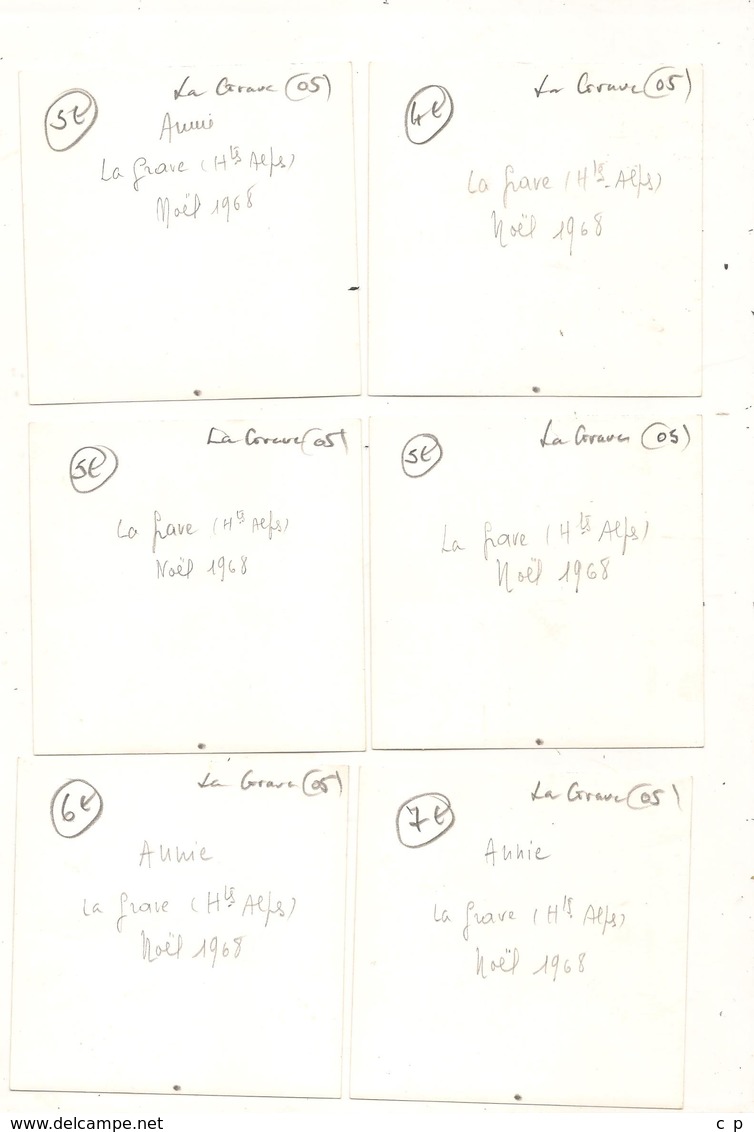 La Grave (05)
5€
Annie
La Grave (Htes Alpes)
Noël 1968
La Grave (05)
4€
La Grave (Htes Alpes)
Noël 1968
La Grave (05)
5€
La Grave (Htes Alpes)
Noël 1968
La Grave (05)
5€
La Grave (Htes Alpes)
Noël 1968
La Grave (05)
6€
Annie
La Grave (Htes Alpes)
Noël 1968
La Grave (05)
7€
Annie
La Grave (Htes Alpes)
Noël 1968
www.delcampe.net
c p